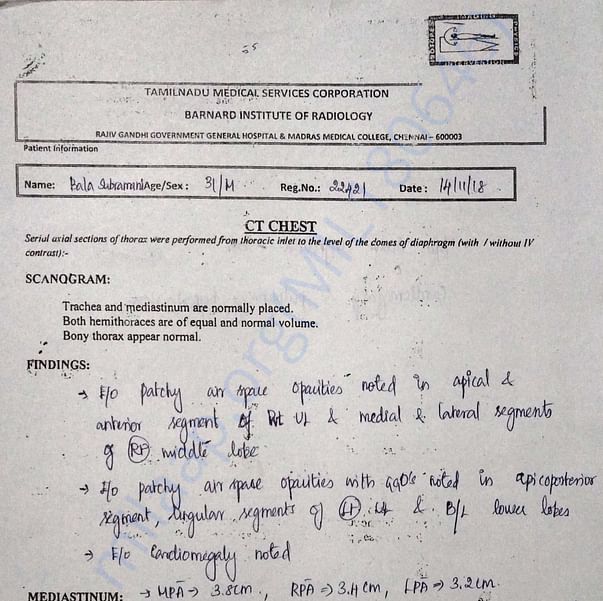 INTERVENTION
TAMILNADU MEDICAL SERVICES CORPORATION
BARNARD INSTITUTE OF RADIOLOGY
RAJIV GANDHI GOVERNMENT GENERAL HOSPITAL & MADRAS MEDICAL COLLEGE, CHENNAI – 600003
Patient Information
Name: Bala Subramani Age/Sex: 31/M Reg.No.: 22421 Date: 14/11/18
CT CHEST
Serial axial sections of thorax were performed from thoracic inlet to the level of the domes of diaphragm (with / without IV
contrast):-
SCANOGRAM:
Trachea and mediastinum are normally placed.
Both hemithoraces are of equal and normal volume.
Bony thorax appear normal.
FINDINGS:
→ E/o patchy air space opacities noted in apical &
anterior segment of Rt UL & medial & lateral segments
of Rt middle lobe
→ E/o patchy air space opacities with GGO's noted in apicoposterior
segment, lingular segments of Lt UL & B/L lower lobes
→ E/o Cardiomegaly noted
MEDIASTINUM: → MPA → 3.8cm, RPA → 3.4cm, LPA → 3.2cm.
milaap.org